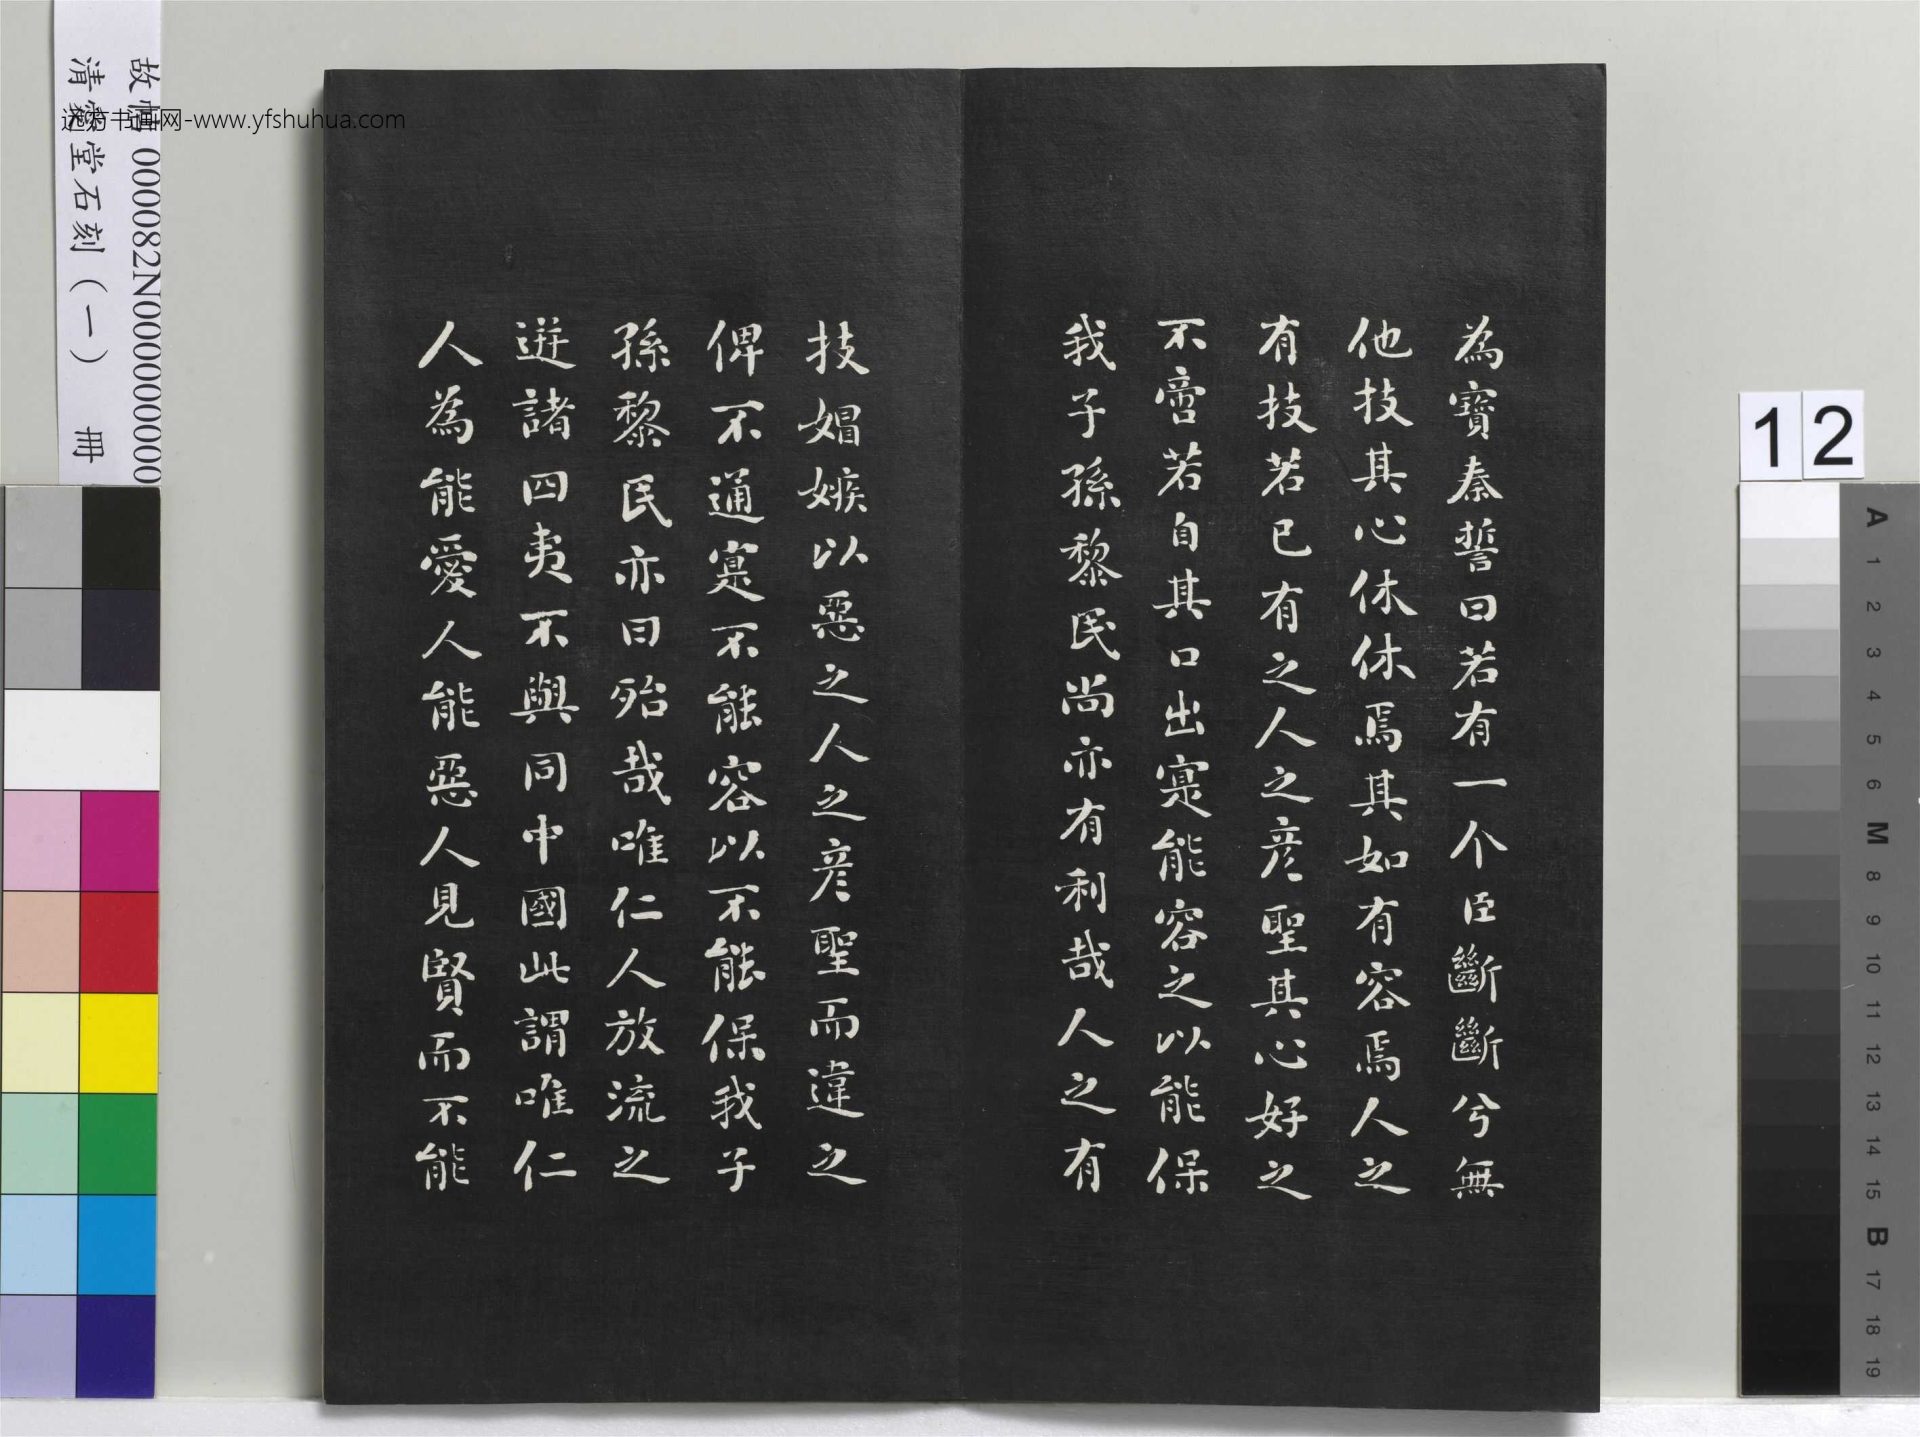 為寶秦誓曰若有一个臣斷斷兮無
他技其心休休焉其如有容焉人之
有技若已有之人之彥聖其心好之
不啻若自其口出寔能容之以能保
我子孫黎民尚亦有利哉人之有
技媢嫉以惡之人之彥聖而違之
俾不通寔不能容以不能保我子
孫黎民亦曰殆哉唯仁人放流之
迸諸四夷不與同中國此謂唯仁
人為能愛人能惡人見賢而不能
故帖 000082N000000000
清愛堂石刻（一） 冊
书画网-www.yfshuhua.com
12
A
1
2
3
4
5
6
M
8
9
10
11
12
13
14
15
B
17
18
19